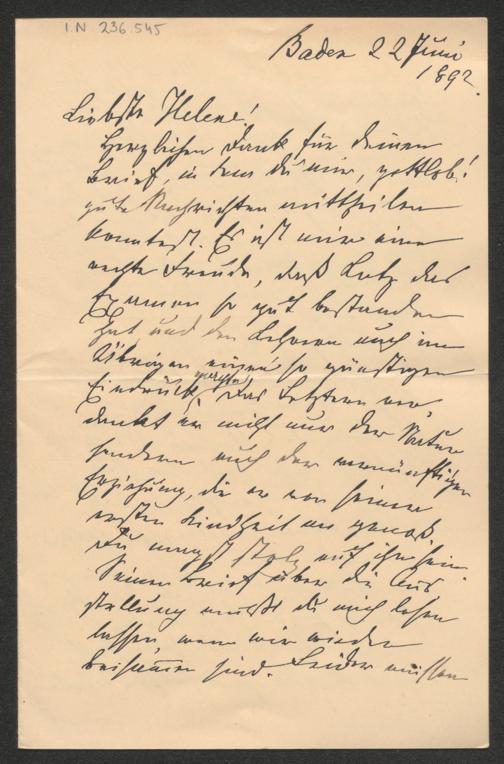 I.N 236.545
Baden 22 Juni
1892.
Liebste Helene!
Herzlichen Dank für Deinen
Brief, in dem Du mir, gottlob!
gute Nachrichten mittheilen
konntest. Es ist mir eine
rechte Freude, daß Lutz das
Examen so gut bestanden
hat und den Lehrern auch im
Übrigen einen so günstigen
Eindruck machte. Das Letztere ver-
dankt er nicht nur der Natur
sondern auch der vernünftigen
Erziehung, die er von seiner
ersten Kindheit an genoß.
Du magst stolz auf ihn sein.
Seinen Brief über die Aus-
stellung mußt du mich lesen
lassen, wenn wir wieder
beisammen sind. Leider müssen